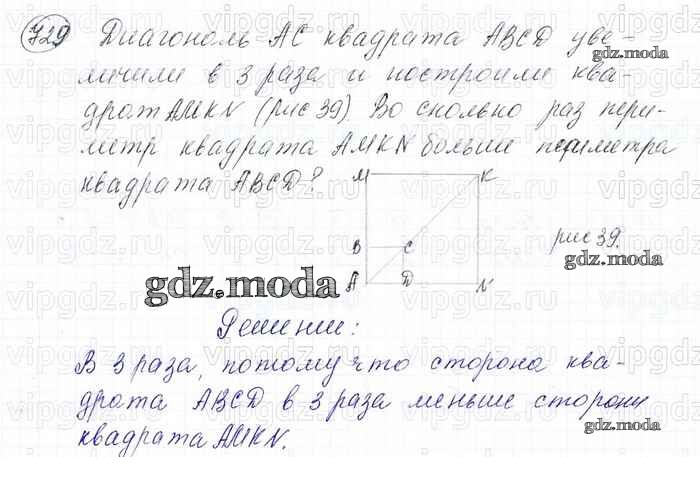 729 Диагональ AC квадрата ABCD уве-
личили в 3 раза и построили ква-
драт AMKN (рис 39). Во сколько раз пери-
метр квадрата AMKN больше периметра
квадрата ABCD?
M K
B C
рис 39.
A D N
Решение:
В 3 раза, потому что сторона ква-
драта ABCD в 3 раза меньше стороны
квадрата AMKN.
gdz.moda
gdz.moda
gdz.moda
vipgdz.ru